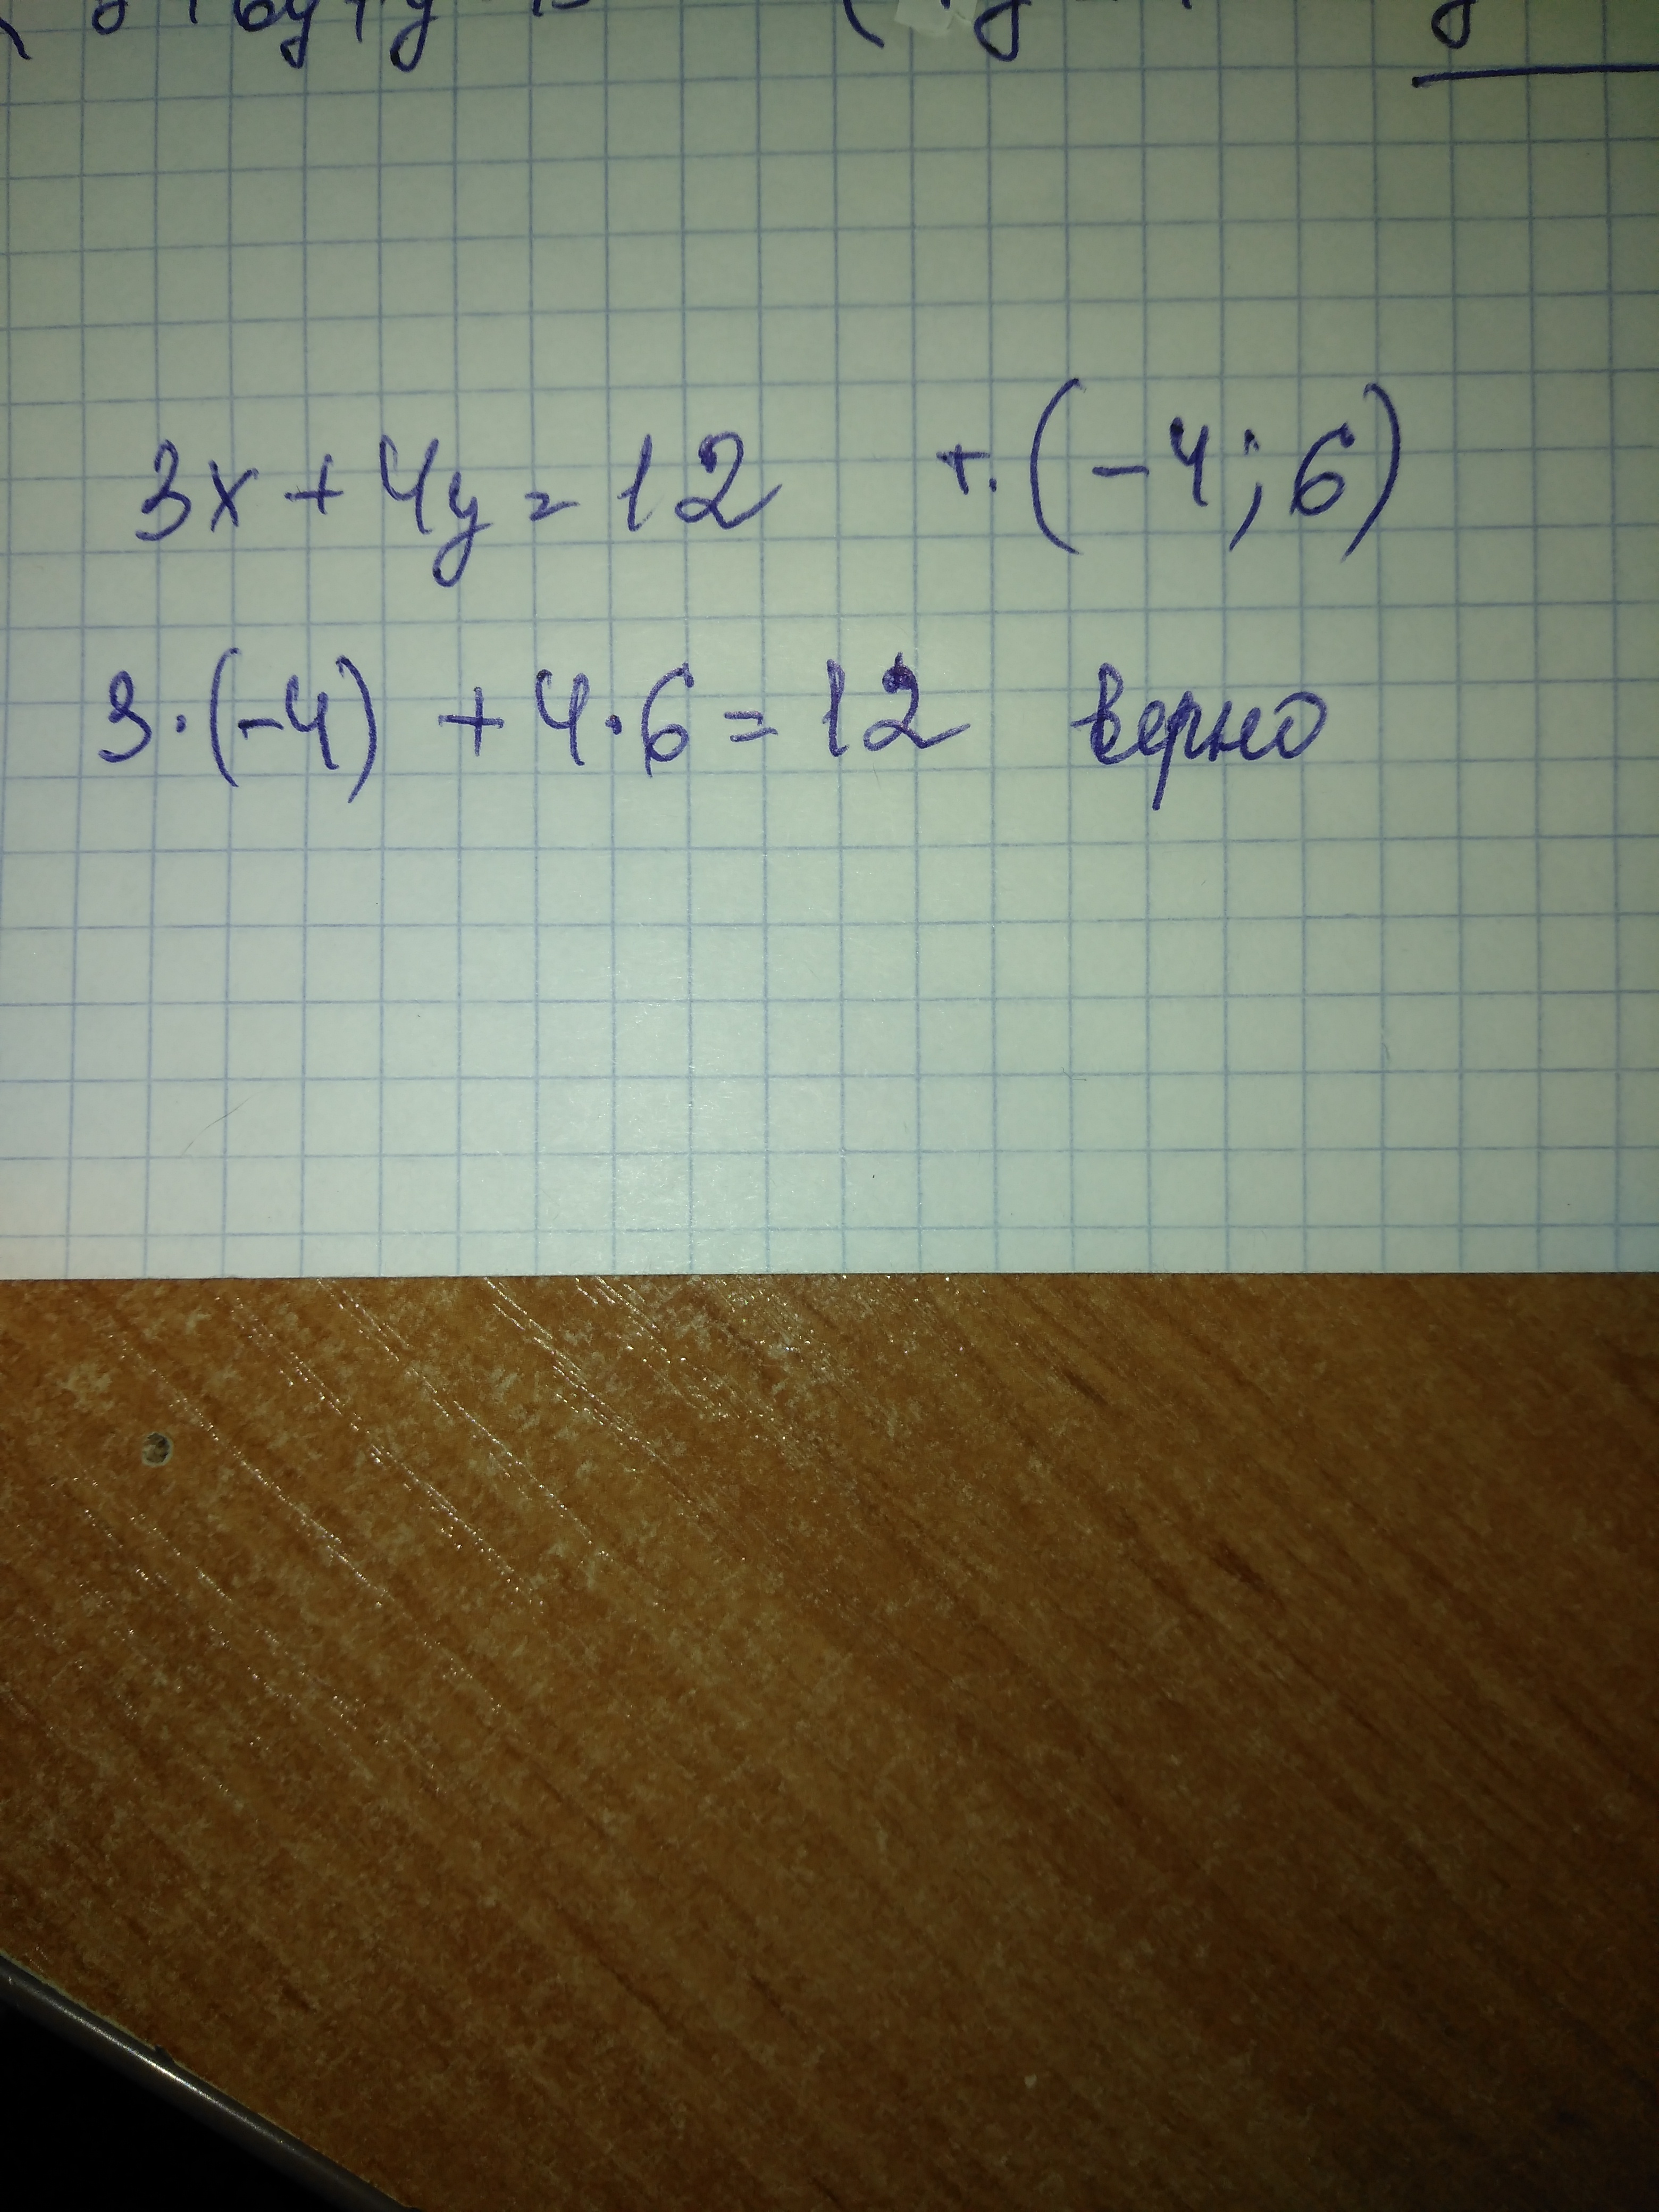 3x + 4y = 12 т. (-4; 6)
3·(-4) + 4·6 = 12 верно